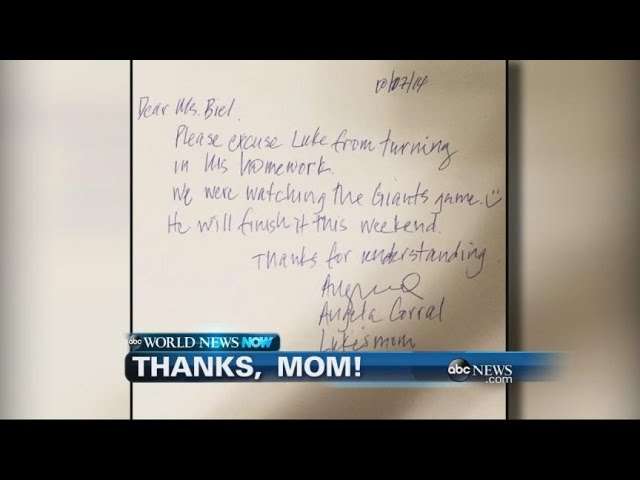 10/07/14
Dear Ms. Biel,
Please excuse Luke from turning
in his homework.
We were watching the Giants game.
He will finish it this weekend.
Thanks for understanding
Angela Corral
Luke's mom
abc WORLD NEWS NOW
THANKS, MOM!
abc NEWS
.com